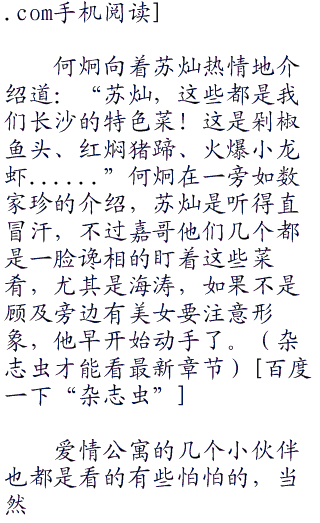 .com手机阅读]
何炯向着苏灿热情地介
绍道：“苏灿，这些都是我
们长沙的特色菜！这是剁椒
鱼头、红焖猪蹄、火爆小龙
虾......”何炯在一旁如数
家珍的介绍，苏灿是听得直
冒汗，不过嘉哥他们几个都
是一脸谗相的盯着这些菜
肴，尤其是海涛，如果不是
顾及旁边有美女要注意形
象，他早开始动手了。（杂
志虫才能看最新章节）[百度
一下“杂志虫”]
爱情公寓的几个小伙伴
也都是看的有些怕怕的，当
然